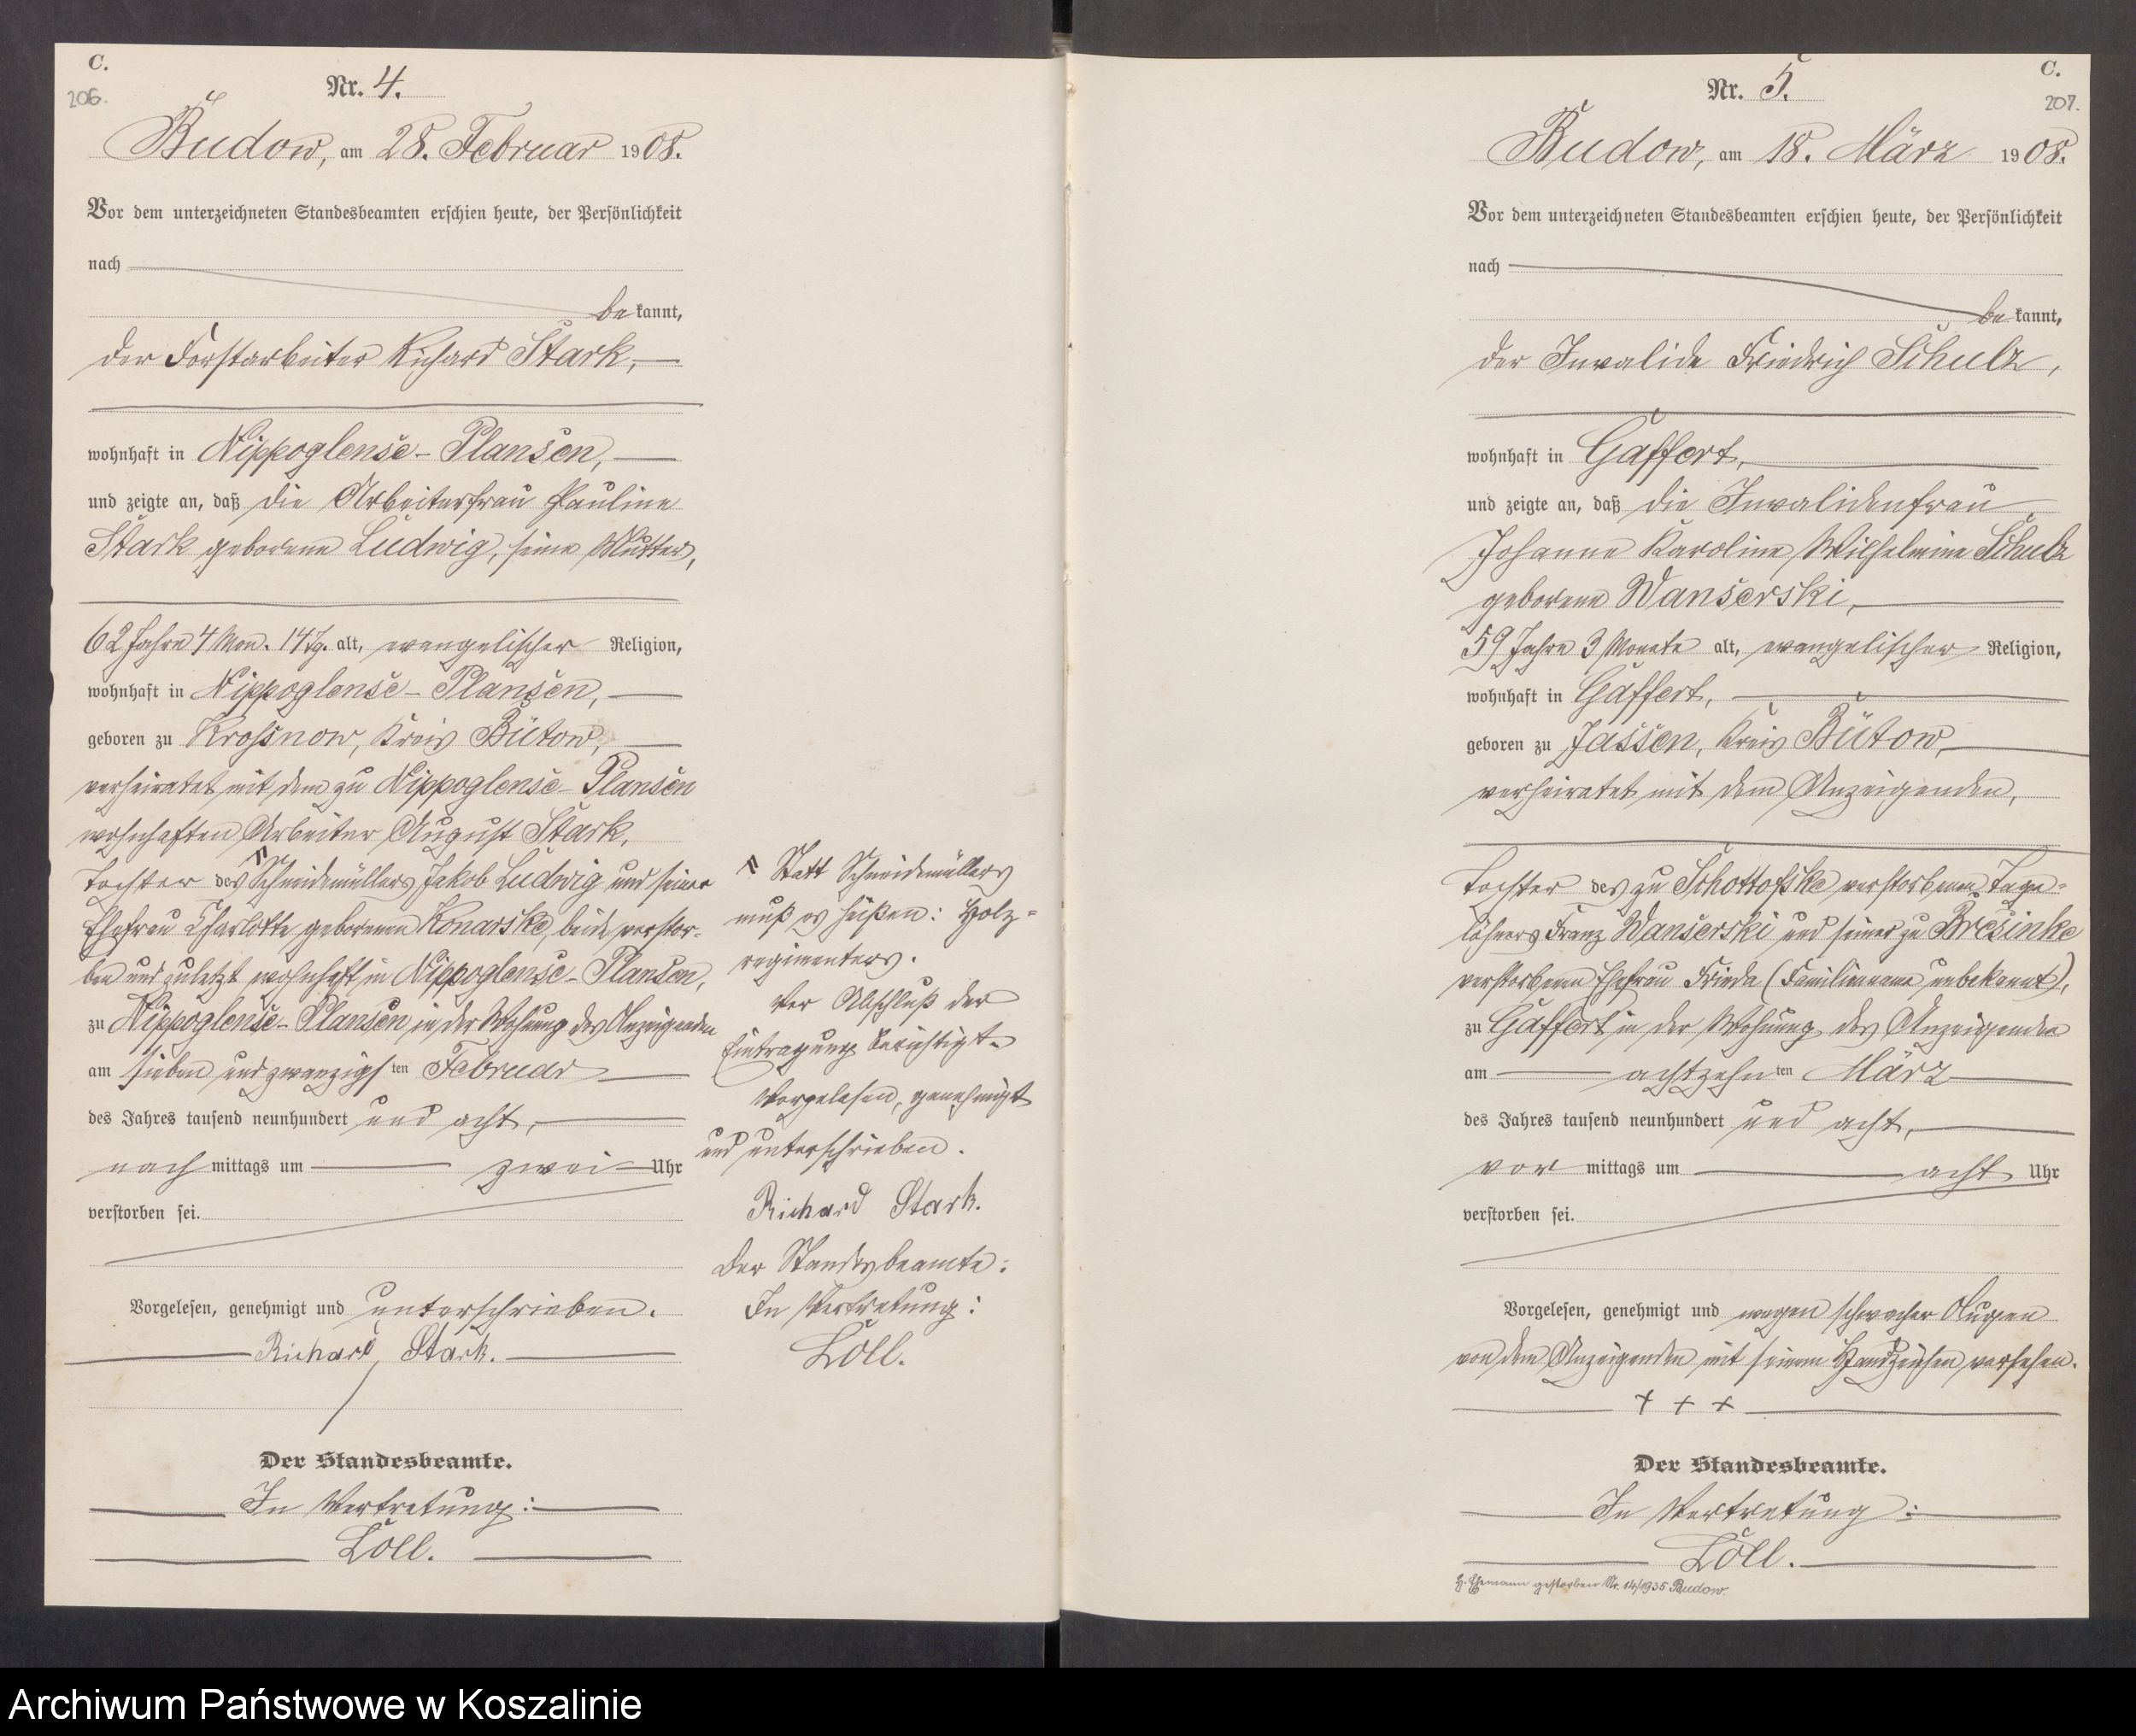 C.
206.
Nr. 4.
Budow, am 28. Februar 1908.
Vor dem unterzeichneten Standesbeamten erschien heute, der Persönlichkeit
nach
be kannt,
der Forstarbeiter Richard Stark,
wohnhaft in Nippoglense-Plansen,
und zeigte an, daß die Arbeiterfrau Pauline
Stark geborene Ludwig, seine Mutter,
62 Jahre 4 Mon. 14 Tg. alt, evangelischer Religion,
wohnhaft in Nippoglense-Plansen,
geboren zu Krossnow, Kreis Bütow,
verheiratet mit dem zu Nippoglense-Plansen
wohnhaften Arbeiter August Stark,
Tochter des Schneidemüllers Jakob Ludwig und seiner
Ehefrau Charlotte geborenen Konarske, beide verstor-
ben und zuletzt wohnhaft in Nippoglense-Plansen,
zu Nippoglense-Plansen in der Wohnung des Anzeigenden
am sieben und zwanzigsten Februar
des Jahres tausend neunhundert und acht,
nach mittags um zwei Uhr
verstorben sei.
Vorgelesen, genehmigt und unterschrieben.
Richard Stark.
Der Standesbeamte.
In Vertretung:
Löll.
Statt Schneidemüllers
muß es heißen: Holz-
regimenters.
Vor Abschluß der
Eintragung berichtigt.
Vorgelesen, genehmigt
und unterschrieben.
Richard Stark.
Der Standesbeamte:
In Vertretung:
Löll.
C.
207.
Nr. 5.
Budow, am 18. März 1908.
Vor dem unterzeichneten Standesbeamten erschien heute, der Persönlichkeit
nach
be kannt,
der Invalide Friedrich Schulz,
wohnhaft in Gaffert,
und zeigte an, daß die Invalidenfrau
Johanne Karoline Wilhelmine Schulz
geborene Wanserski,
59 Jahre 3 Monate alt, evangelischer Religion,
wohnhaft in Gaffert,
geboren zu Jassen, Kreis Bütow,
verheiratet mit dem Anzeigenden,
Tochter des zu Schottofske verstorbenen Tage-
löhners Franz Wanserski und seiner zu Bresinke
verstorbenen Ehefrau Frieda (Familienname unbekannt),
zu Gaffert in der Wohnung des Anzeigenden
am achtzehnten März
des Jahres tausend neunhundert und acht,
vor mittags um acht Uhr
verstorben sei.
Vorgelesen, genehmigt und wegen schwacher Augen
von dem Anzeigenden mit seinem Handzeichen versehen.
+ + +
Der Standesbeamte.
In Vertretung:
Löll.
H. Ehemann gestorben Nr. 14/1935 Budow.
Archiwum Państwowe w Koszalinie